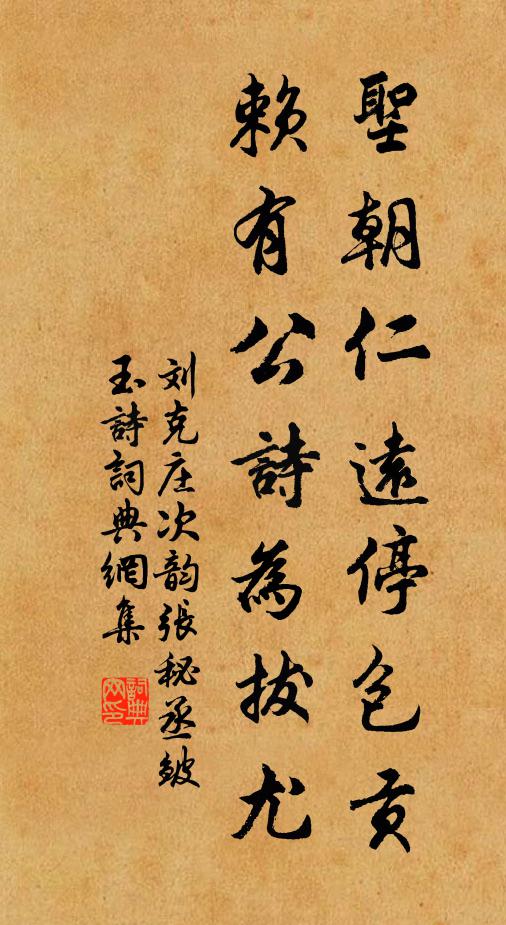 聖朝仁遠停包貢
賴有公詩為拔尤
刘克庄次韵張秘丞皴
玉詩詞典網集
詞典網印